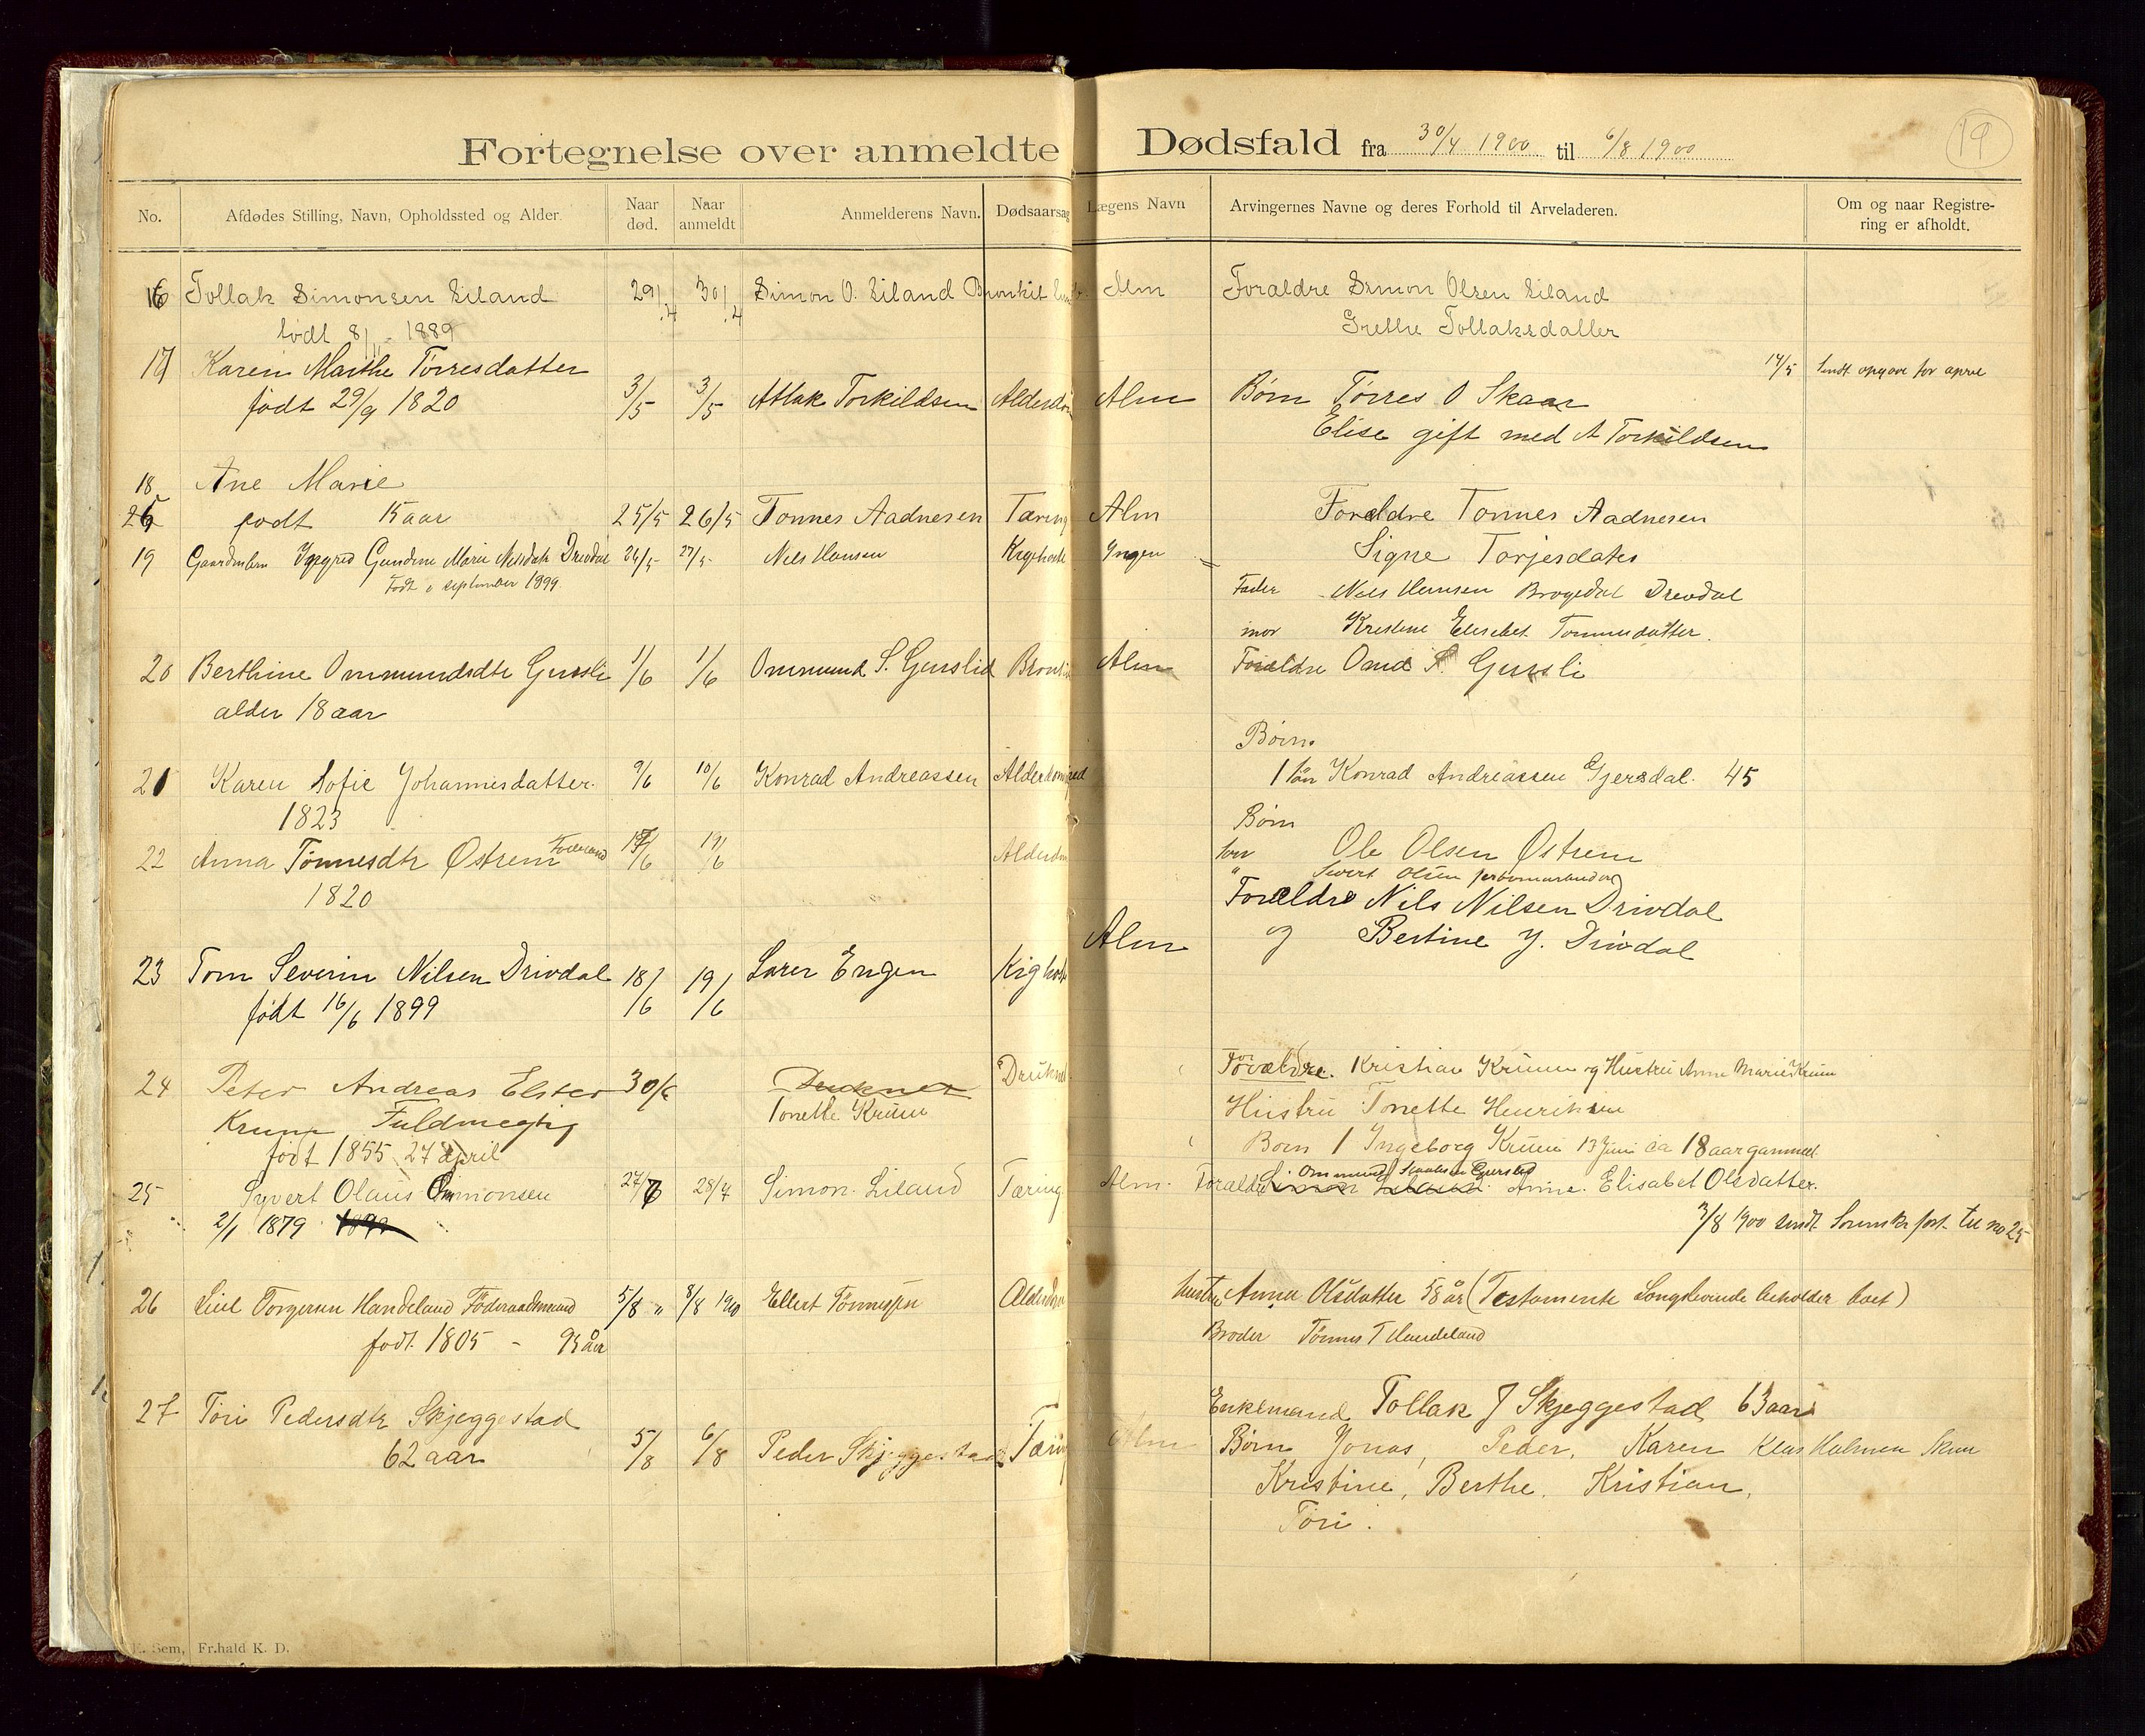 Fortegnelse over anmeldte Dødsfald fra 30/4 1900 til 6/8 1900
19
No.
Afdødes Stilling, Navn, Opholdssted og Alder.
Naar død.
Naar anmeldt
Anmelderens Navn.
Dødsaarsag
Lægens Navn
Arvingernes Navne og deres Forhold til Arveladeren.
Om og naar Registrering er afholdt.
16 Tollak Simonsen Liland 29/4 30/4 Simon O. Liland Bronkit Alm Foraldre Simon Olsen Liland
født 8/11 - 1889 Grethe Tollaksdatter
17 Karen Marthe Tørresdatter 14/5 Sendt opgave for april
født 29/9 1820 3/5 3/5 Atlak Torkildsen Alderdom Alm Børn Tørres O Skaar
Elise gift med A Torkildsen
18 Ane Marie
25 født 15 aar 25/5 26/5 Tonnes Aadnesen Tæring Alm Foreldre Tonnes Aadnesen
Signe Torjesdater
19 Gaardmbrn Ingegred Gundine Marie Nilsdatr Drivdal 26/5 27/5 Nils Hansen Kighoste Ingen
Født i september 1899
Fader Nils Hansen Brogedal Drevdal
mor Kristine Elisebet Tønnesdatter.
20 Berthine Ommundsdtr Gursli 1/6 1/6 Ommund S. Gurslid Bronkit Alm Foreldre Omd S. Gursli
alder 18 aar
Børn
21 Karen Sofie Johannesdatter. 9/6 10/6 Konrad Andreassen Alderdomsved 1 Søn Konrad Andreassen Gjersdal. 45
1823
Børn
22 Anna Tönnesdtr Østrem 19/6 Alderdom søn Ole Olsen Østrem
1820 " Sivert Olsen
Foreldre Nils Nilsen Drivdal
Alm og Bertine J. Drivdal
23 Tom Severin Nilsen Drivdal 18/6 19/6 Larer Engen Kighoste
født 16/6 1899
24 Peter Andreas Elster 30/6 Druknet Forældre. Kristian Krum og Hustru Anne Marie Krum
Krum Fuldmegtig Tonette Krüm Hüstrü Tonette Henriksen
født 1855 27 april Born 1 Ingeborg Krüm 13 Juni ca 18 aar gammel
25 Syvert Olaus Simonsen 27/7 28/7 Simon Liland Tæring Alm. Foraldre Anne Elisabet Olsdatter.
2/1 1879 3/8 1900 sendt til no 25
26 Siul Torgersen Handeland Föderaadsmand 5/8 " 8/8 1900 Ellert Tönnesen Alderdom hustru Anna Olsdatter 58 år (Testamente Længstlevende beholder boet)
født 1805 - 95 år Broder Tönnes T Handeland
27 Tori Pedersdtr Skjeggestad Enkemand Tollak J Skjeggestad 63 aar
62 aar 5/8 6/8 Peder Skjeggestad Tæring Alm Børn Jonas, Peder, Karen
Kristine, Berthe, Kristian,
Tori.
Sem, Fr.hald K. D.